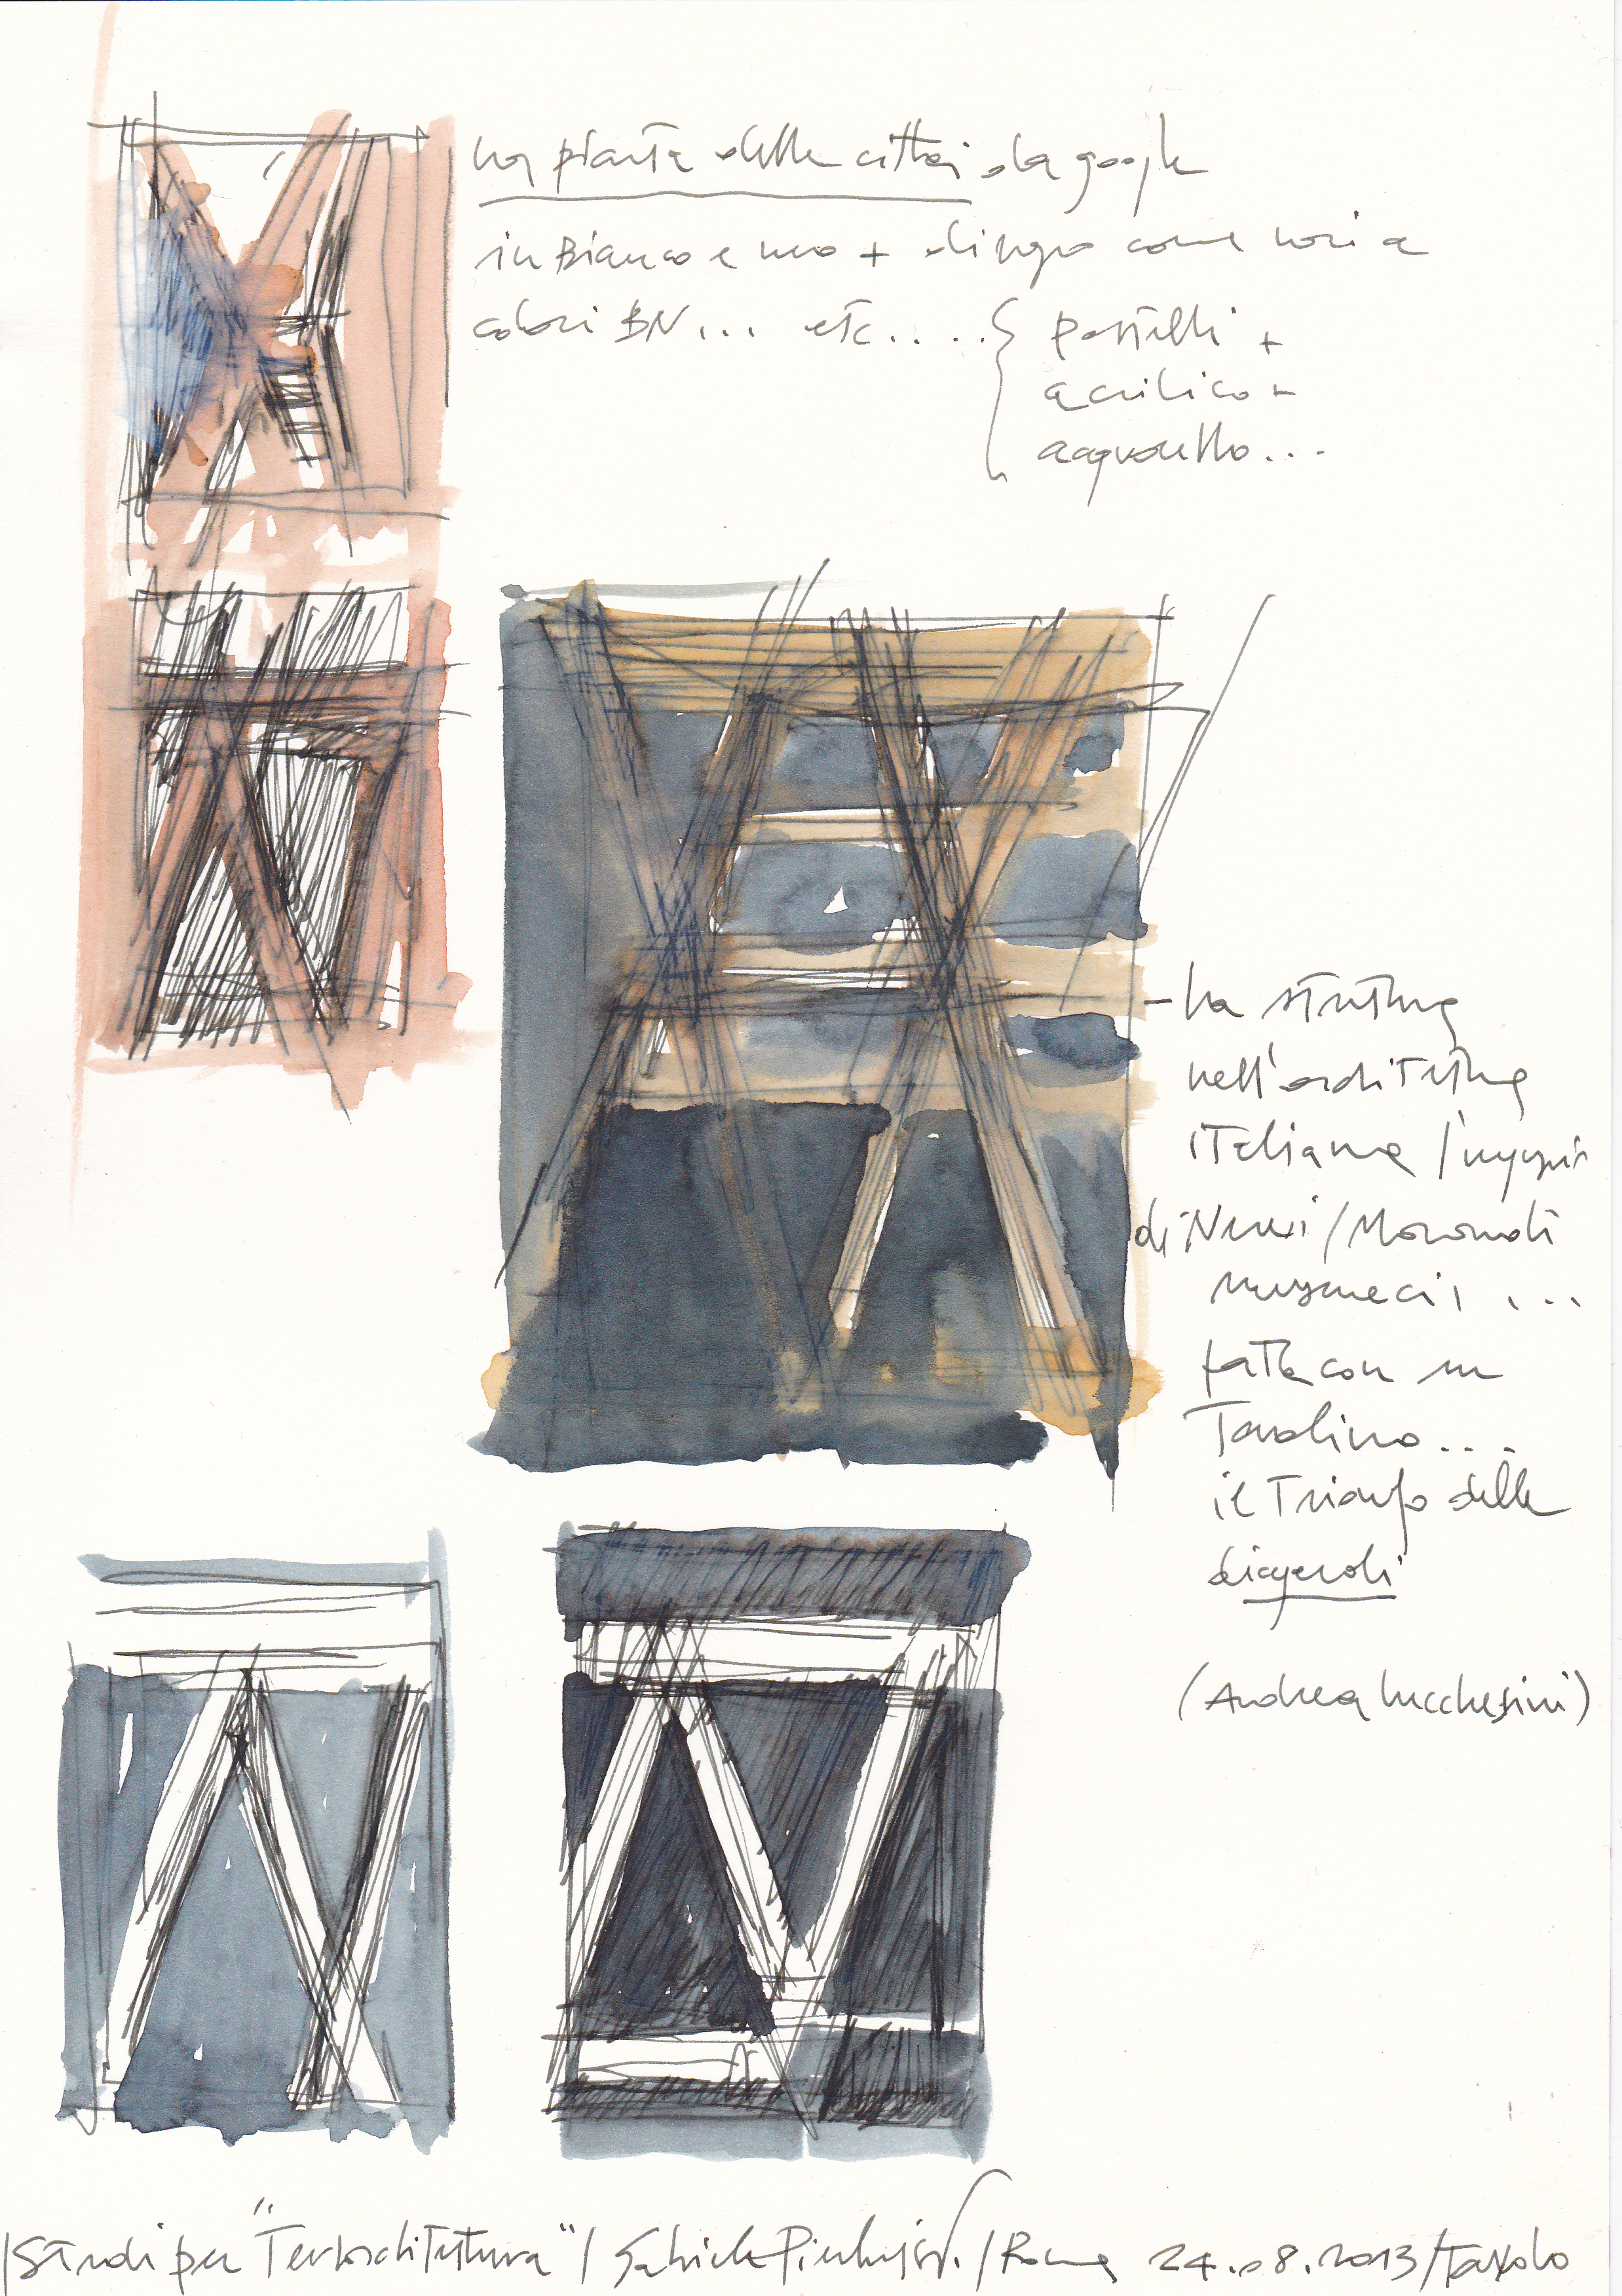 La pianta della città da google
in Bianco e nero + come
colori BN... etc.....
pastelli +
acrilico +
acquerello...
- La struttura
nell'architettura
italiana /
di Nervi / Morandi
Musmeci, ...
fatta con un
Tavolino...
il Trionfo delle
diagonali
(Andrea Lucchesini)
/ Studi per "Terkschitettura" / / Roma 24.08.2013 / Tavolo